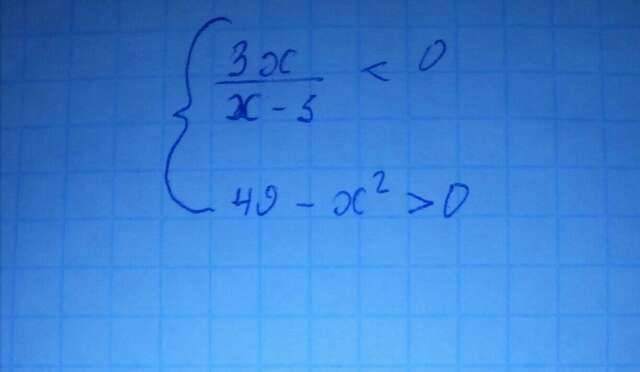 3x
x - 5 < 0
49 - x² > 0